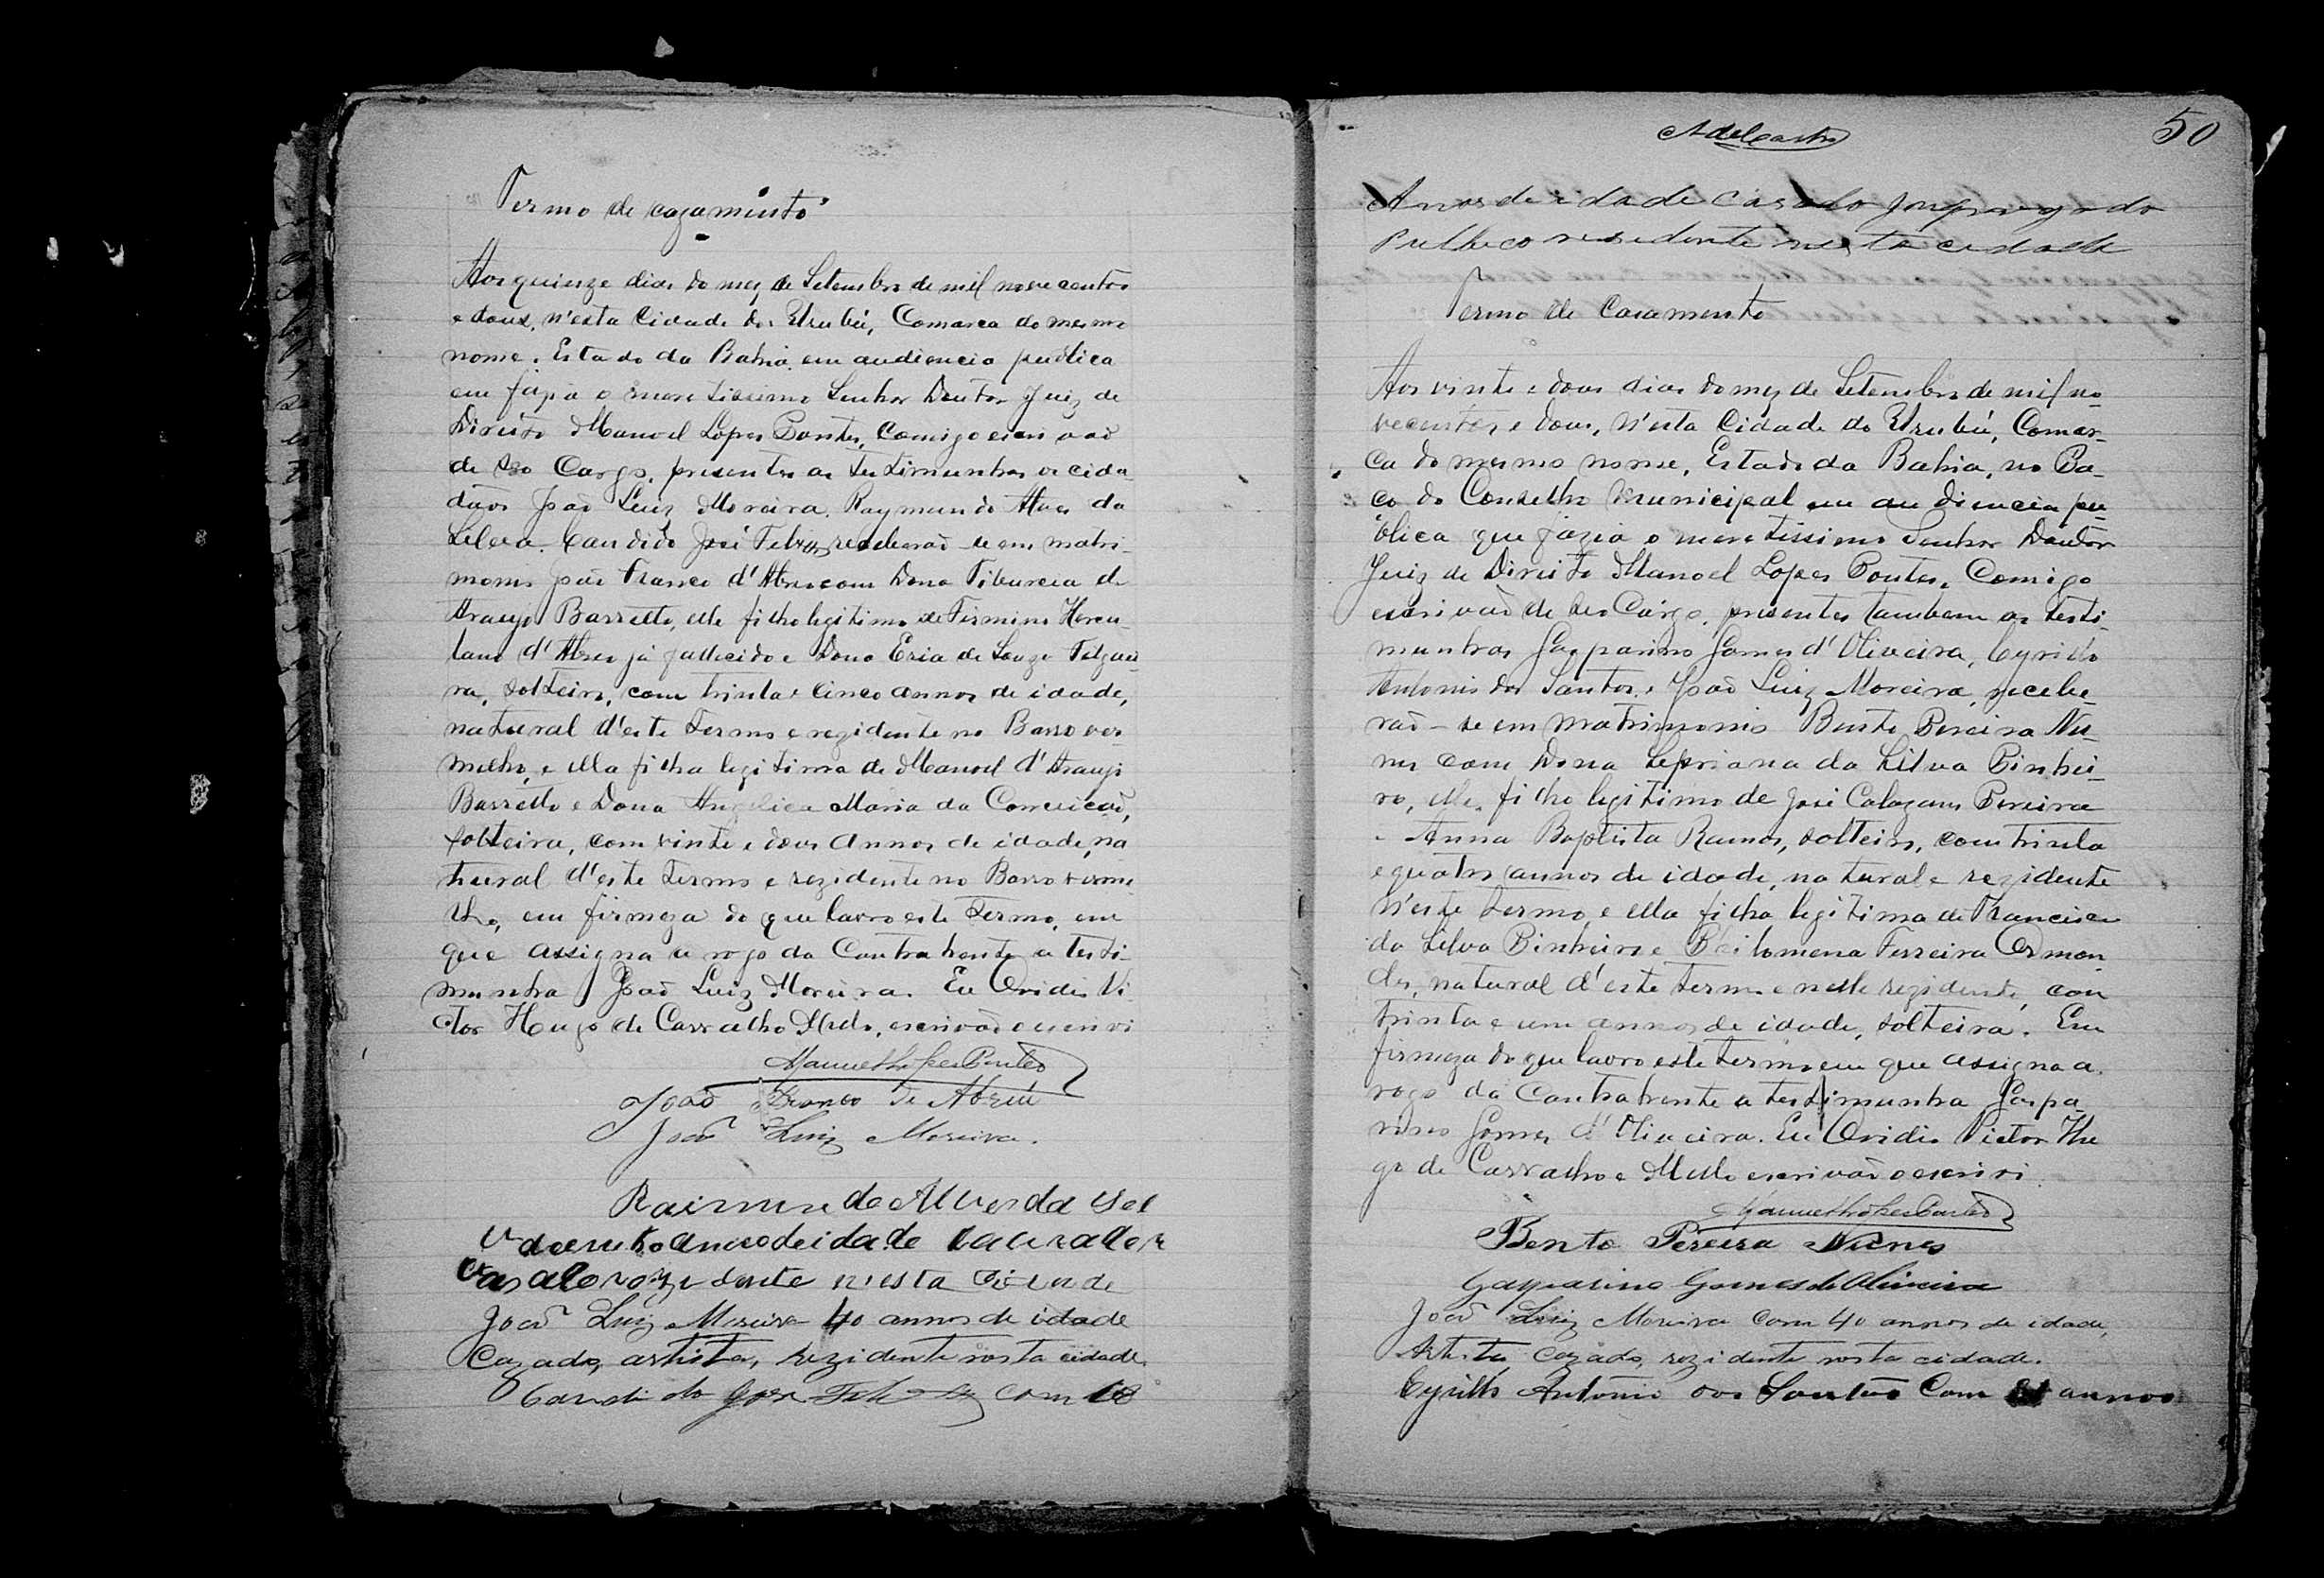 Termo de cazamento
Aos quinze dias do mez de Setembro de mil novecentos
e dous, n'esta Cidade do Urubú, Comarca do mesmo
nome. Estado da Bahia em audiencia publica
em fazia o meretissimo Senhor Doutor Juiz de
Direito Manoel Lopes Pontes, Comigo escrivaõ
de seo Cargo, presentes as testimunhas os cida
dãos Joaõ Luiz Moreira, Raymundo Alves da
Silva. Candido José receberaõ-se em matri-
monio Joaõ Franco d'Abreo com Dona Tiburcia de
Araujo Barretto, elle filho legitimo de Firmino Hercu
lano d'Abreo já fallecido e Dona de Souza
ra, solteiro, com trinta e cinco annos de idade,
natural d'este termo e rezidente no Barro ver
melho, e ella filha legitima de Manoel d'Araujo
Barretto e Dona Angelica Maria da Conceicaõ,
solteira, com vinte e dous annos de idade, na
tural d'este termo e rezidente no Barro verme
lho, em firmeza do que lavro este termo, em
que assigna a rogo da Contrahente a testi-
munha Joaõ Luiz Moreira. Eu Ovidio Vi
ctor Hugo de Carvalho Mello, escrivaõ o escrivi
Manuel Lopes Pontes
Joaõ Franco de Abreu
Joaõ Luiz Moreira.
Raimundo Alves da Sel
va anno de idade lavrador
rezidente n'esta
Joaõ Luiz Moreira 40 annos de idade
Cazado, artista, rezidente nesta cidade.
Candido José com
50
Annos de idade Casado Empregado
Publico residente nesta cidade
Termo de Casamento
Aos vinte e dous dias do mez de Setembro de mil no-
vecentos e dous, n'esta Cidade do Urubú, Comar-
ca do mesmo nome, Estado da Bahia, no Pa-
ço do Conselho Municipal em audiencia pu-
blica que fazia o meretissimo Senhor Doutor
Juiz de Direito Manoel Lopes Pontes, Comigo
escrivaõ de seo Cargo, presentes tambem as testi-
munhas Gasparino Gomes d'Oliveira, Cyrillo
Antonio dos Santos, e Joaõ Luiz Moreira, recebe-
raõ-se em matrimonio Bento Pereira Nu-
nes com Dona da Silva Pinhei-
ro, elle, filho legitimo de José Calazans Pereira
e Anna Baptista Ramos, solteiro, com trinta
e quatro annos de idade, natural e rezidente
n'este termo, e ella filha legitima de Francisco
da Silva Pinheiro e Philomena Ferreira Ormon-
des, natural d'este termo e nelle rezidente, com
trinta e um annos de idade, solteira. Em
firmeza do que lavro este termo em que assigna a
rogo da Contrahente a testimunha Gaspa-
rino Gomes d'Oliveira. Eu Ovidio Victor Hu
go de Carvalho e Mello escrivaõ o escrivi.
Manuel Lopes Pontes
Bento Pereira Nunes
Gasparino Gomes de Oliveira
Joaõ Luiz Moreira com 40 annos de idade,
Artista cazado, rezidente nesta cidade.
Cyrillo Antonio dos Santos Com annos